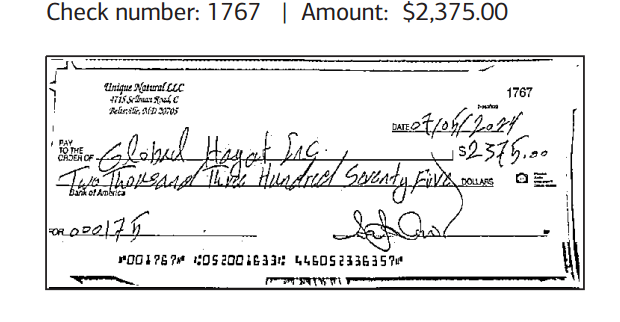 Check number: 1767 | Amount: $2,375.00
Unique Natural LLC
4715 Sellman Road, C
Beltsville, MD 20705
1767
DATE 07/05/2024
PAY TO THE ORDER OF Global Hayat Inc. $2375.00
Two Thousand Three Hundred Seventy Five DOLLARS
Bank of America
FOR 000175
⑈001767⑈ ⑆052001633⑆ 446052336357⑈